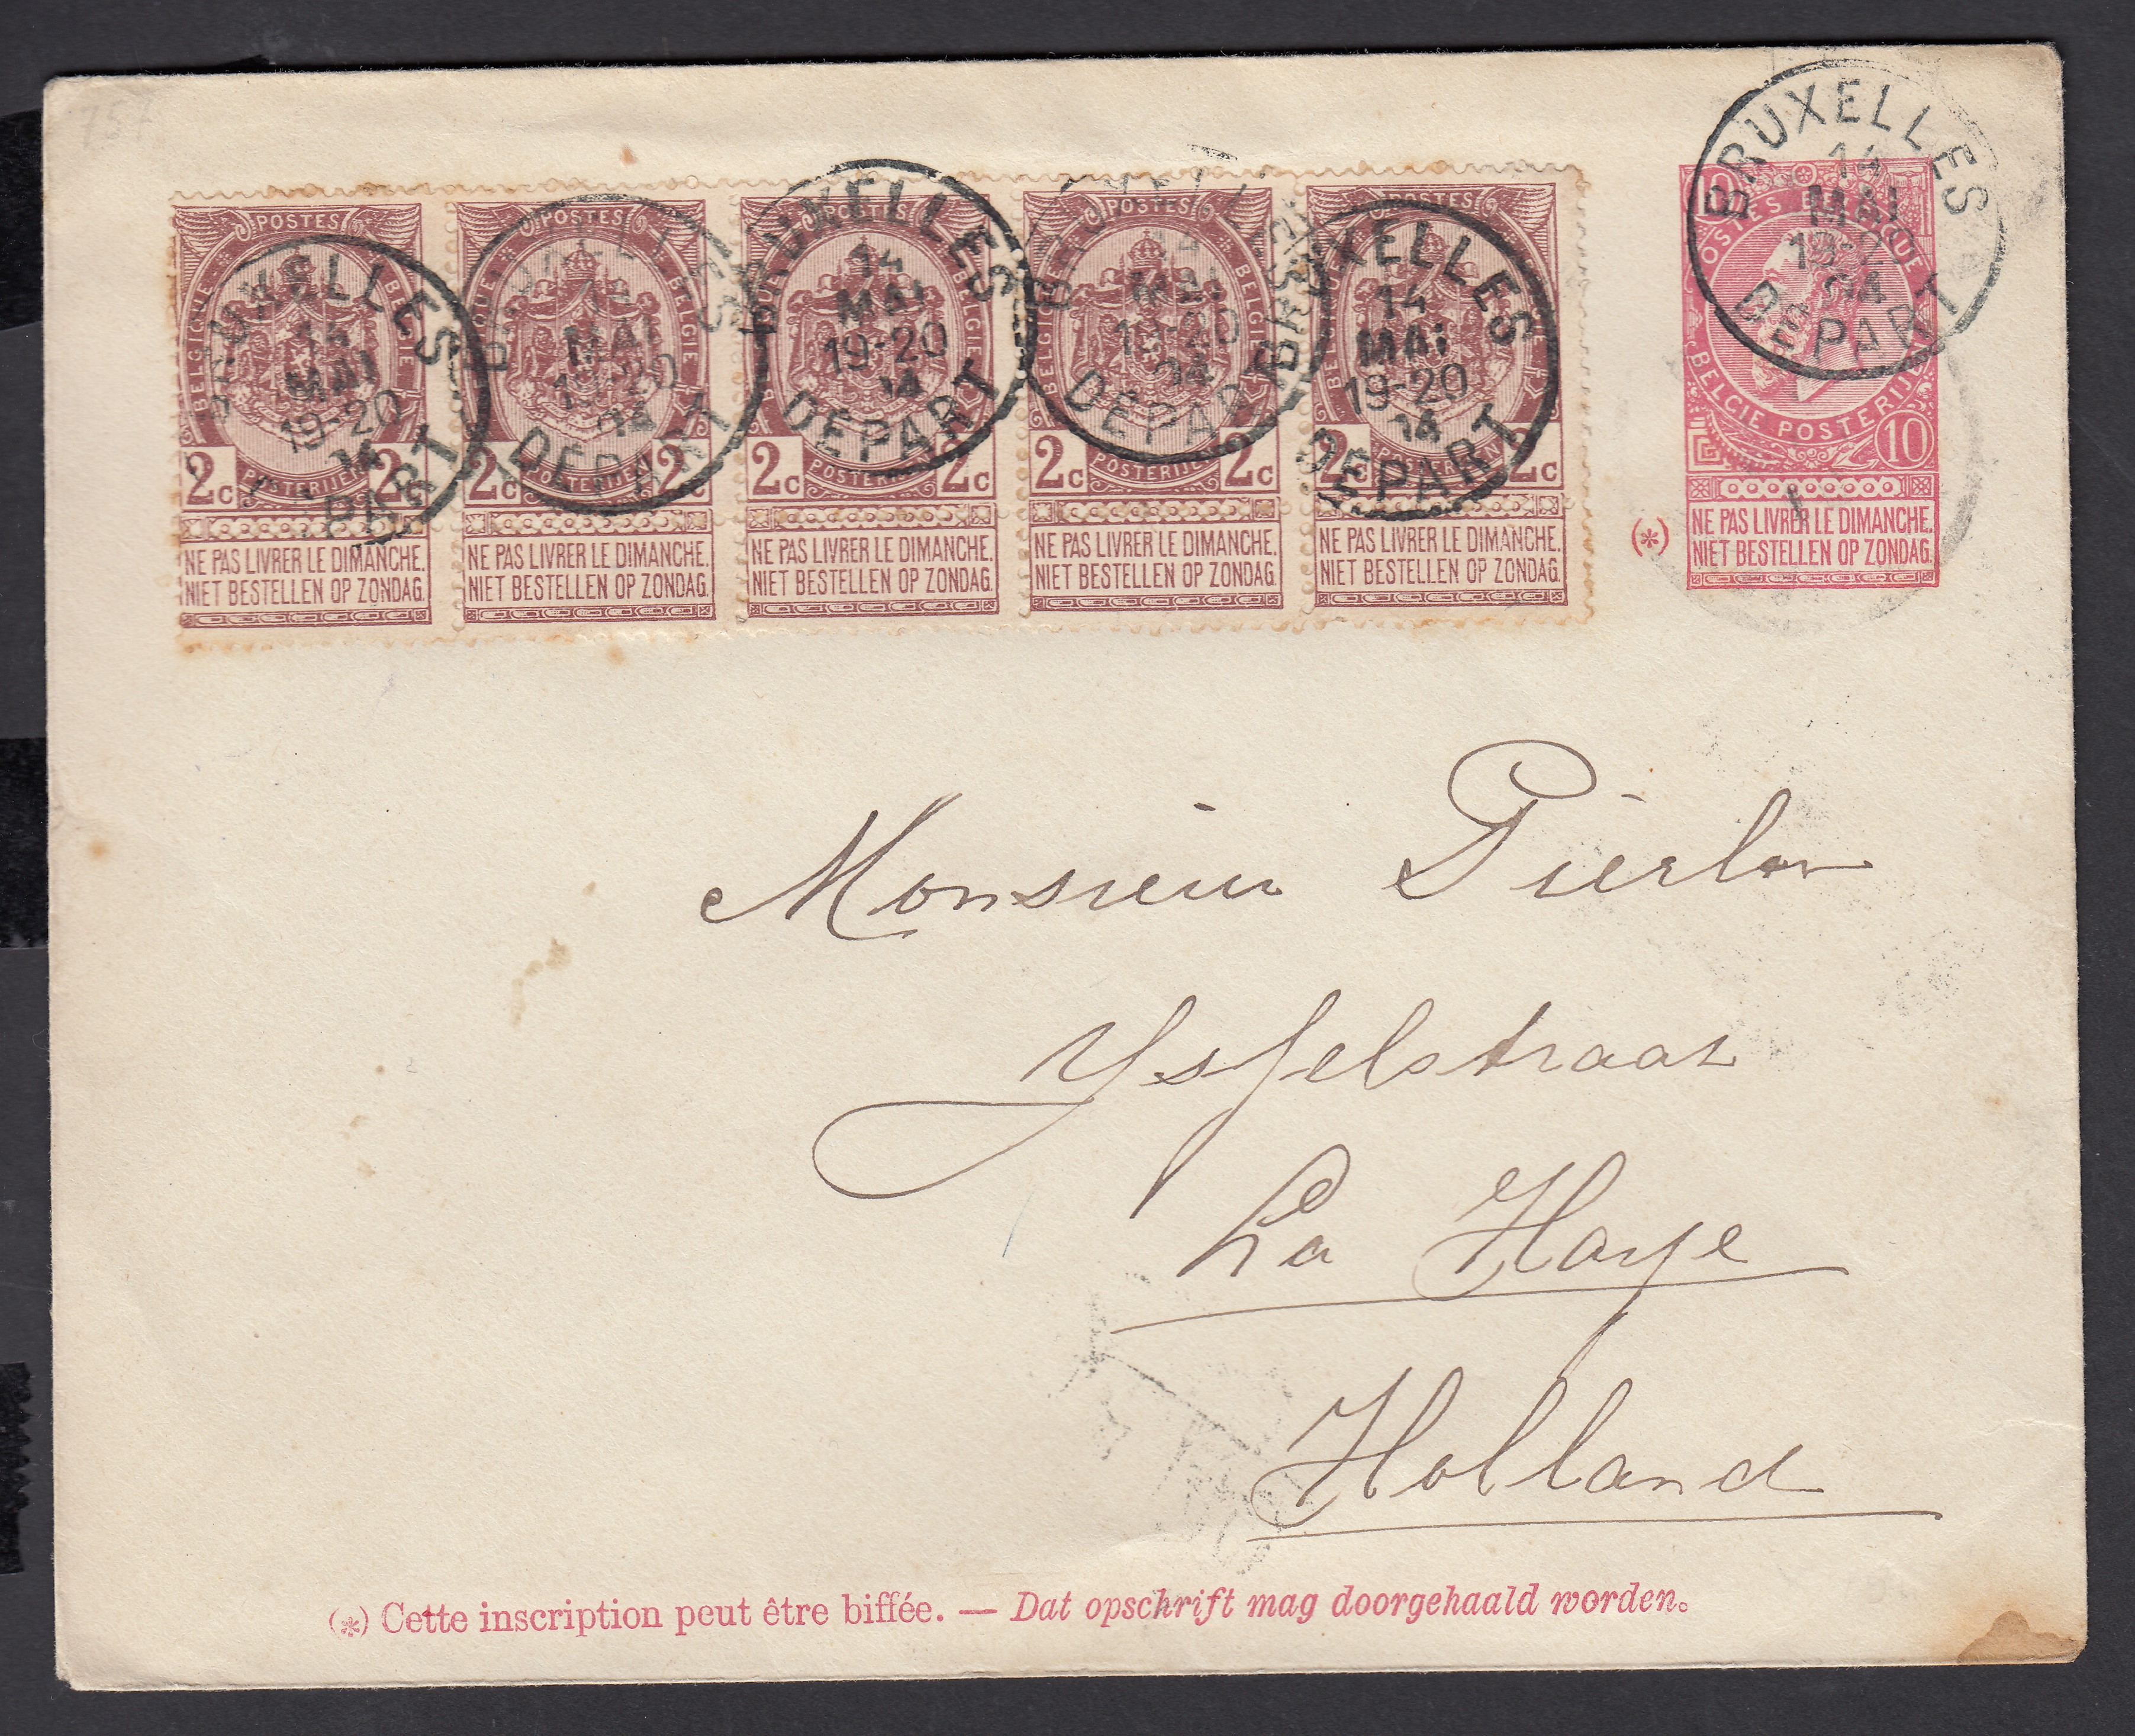 757
POSTES
BELGIQUE BELGIE
2c 2c
POSTERIJEN
NE PAS LIVRER LE DIMANCHE.
NIET BESTELLEN OP ZONDAG.
BRUXELLES
14
MAI
19-20
94
DEPART
POSTES
BELGIQUE BELGIE
2c 2c
POSTERIJEN
NE PAS LIVRER LE DIMANCHE.
NIET BESTELLEN OP ZONDAG.
BRUXELLES
14
MAI
19-20
94
DEPART
POSTES
BELGIQUE BELGIE
2c 2c
POSTERIJEN
NE PAS LIVRER LE DIMANCHE.
NIET BESTELLEN OP ZONDAG.
BRUXELLES
14
MAI
19-20
94
DEPART
POSTES
BELGIQUE BELGIE
2c 2c
POSTERIJEN
NE PAS LIVRER LE DIMANCHE.
NIET BESTELLEN OP ZONDAG.
BRUXELLES
14
MAI
19-20
94
DEPART
POSTES
BELGIQUE BELGIE
2c 2c
POSTERIJEN
NE PAS LIVRER LE DIMANCHE.
NIET BESTELLEN OP ZONDAG.
BRUXELLES
14
MAI
19-20
94
DEPART
10
POSTES BELGIQUE
BELGIE POSTERIJEN
10
(*) NE PAS LIVRER LE DIMANCHE.
NIET BESTELLEN OP ZONDAG.
BRUXELLES
14
MAI
94
DEPART
Monsieur
Ysselstraat
La Haye
Holland
(*) Cette inscription peut être biffée. — Dat opschrift mag doorgehaald worden.